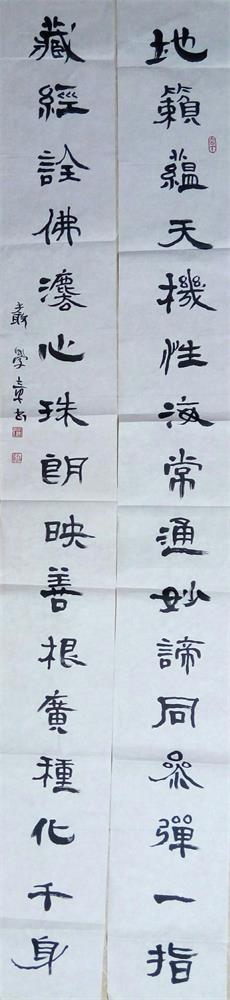 地籟蘊天機性海常通妙諦同參彈一指
藏經詮佛灋心珠朗映善根廣種化千身